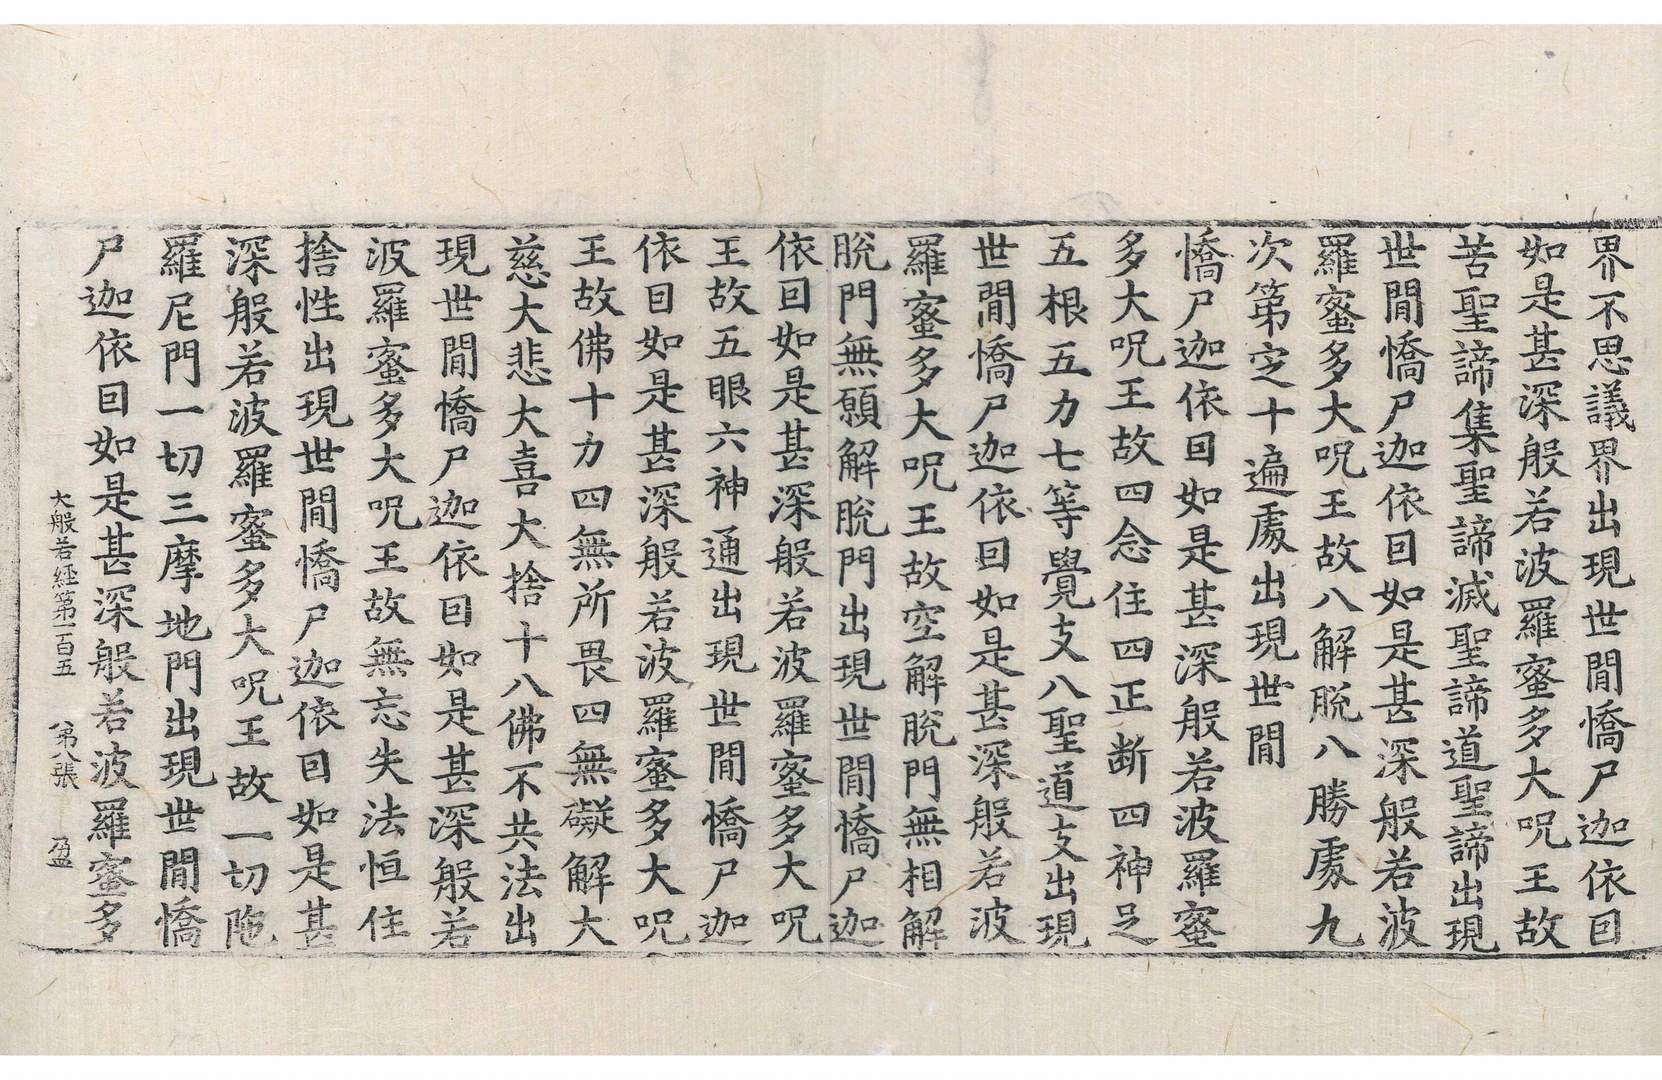 界不思議界出現世間憍尸迦依囙
如是甚深般若波羅蜜多大呪王故
苦聖諦集聖諦滅聖諦道聖諦出現
世間憍尸迦依囙如是甚深般若波
羅蜜多大呪王故八解脫八勝處九
次第定十遍處出現世間
憍尸迦依囙如是甚深般若波羅蜜
多大呪王故四念住四正断四神足
五根五力七等覺支八聖道支出現
世間憍尸迦依囙如是甚深般若波
羅蜜多大呪王故空解脫門無相解
脫門無願解脫門出現世間憍尸迦
依囙如是甚深般若波羅蜜多大呪
王故五眼六神通出現世間憍尸迦
依囙如是甚深般若波羅蜜多大呪
王故佛十力四無所畏四無礙解大
慈大悲大喜大捨十八佛不共法出
現世間憍尸迦依囙如是甚深般若
波羅蜜多大呪王故無忘失法恒住
捨性出現世間憍尸迦依囙如是甚
深般若波羅蜜多大呪王故一切陁
羅尼門一切三摩地門出現世間憍
尸迦依囙如是甚深般若波羅蜜多
大般若經第一百五 第八張 盈